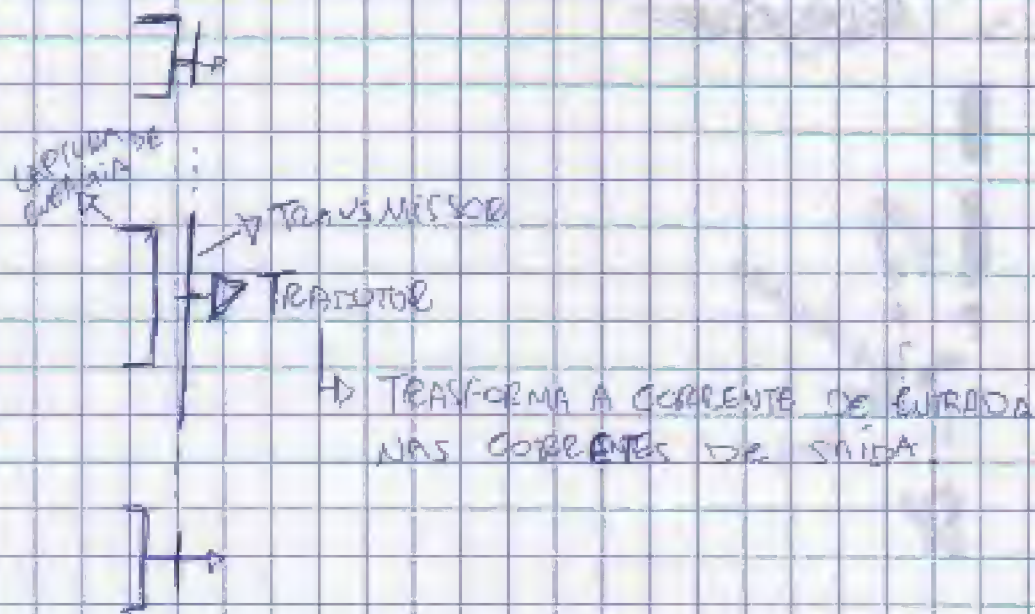 DE
TRANSMISSOR
TRANSISTOR
TRASFORMA A CORRENTE DE ENTRADA
NAS CORRENTES DE SAIDA